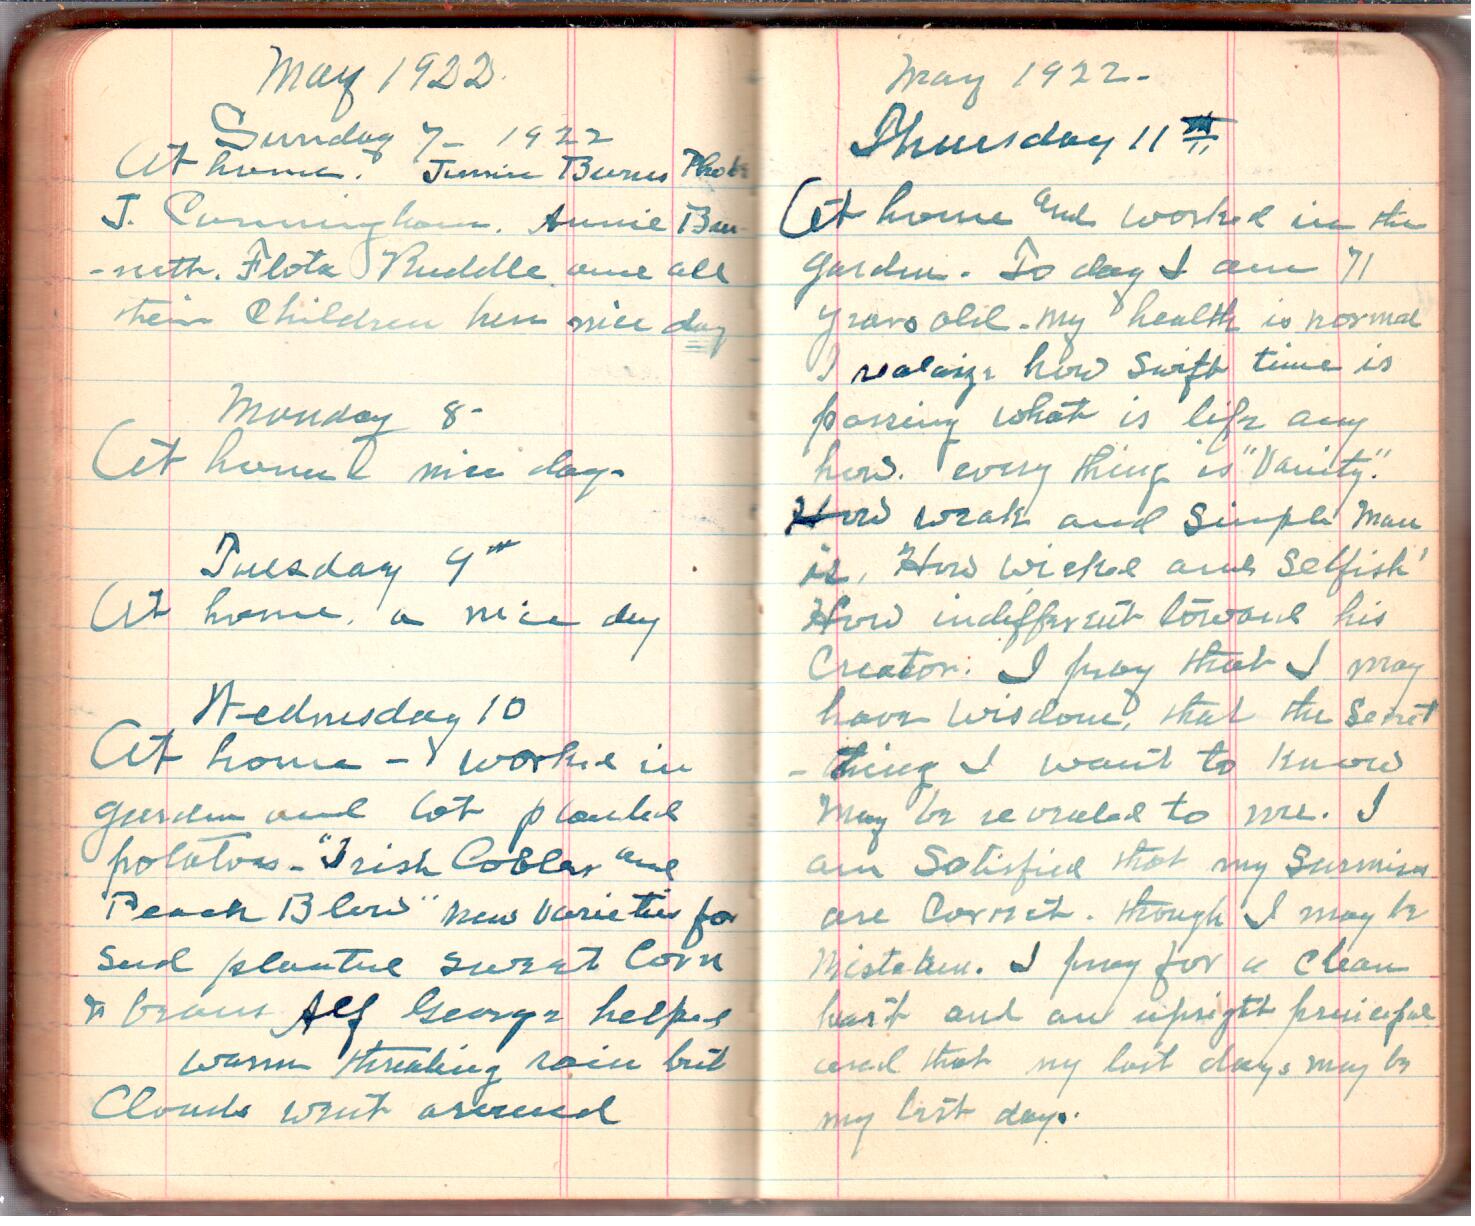 May 1922.
Sunday 7- 1922
At home. Jennie Burns
J. Cunningham. Annie Bur-
-neth. Flota Ruddle and all
their Children here nice day
Monday 8-
At home nice day-
Tuesday 9th
At home. a nice day
Wednesday 10
At home - I worked in
garden and lot planted
potatoes - "Irish Cobler and
Peach Blow" new varieties for
seed planted sweet Corn
& beans Alf George helped
warm threating rain but
Clouds went around
May 1922-
Thursday 11
At home and worked in the
garden. To day I am 71
years old - my health is normal
I realize how swift time is
passing what is life any
how. every thing is "Vanity".
How weak and simple Man
is, "How wicked and selfish"
How indifferent toward his
Creator. I pray that I may
have wisdom, that the secret
- thing I want to know
May be revealed to me. I
am Satisfied that my surmises
are Correct. though I may be
Mistaken. I pray for a Clean
hart and an upright principal
and that my last days may be
my best days.